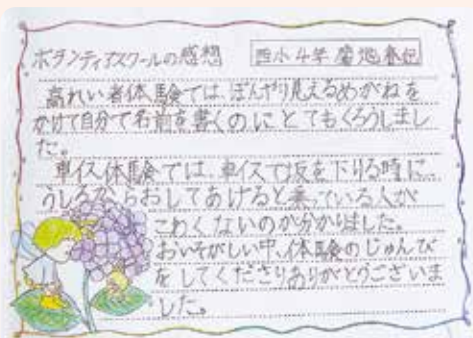 ボランティアスクールの感想 西小4年
高れい者体験では、ぼんやり見えるめがねを
かけて自分で名前を書くのにとてもくろうしまし
た。
車イス体験では、車イスで坂を下りる時に、
うしろからおしてあげると乗っている人が
こわくないのが分かりました。
おいそがしい中、体験のじゅんび
をしてくださりありがとうございま
した。